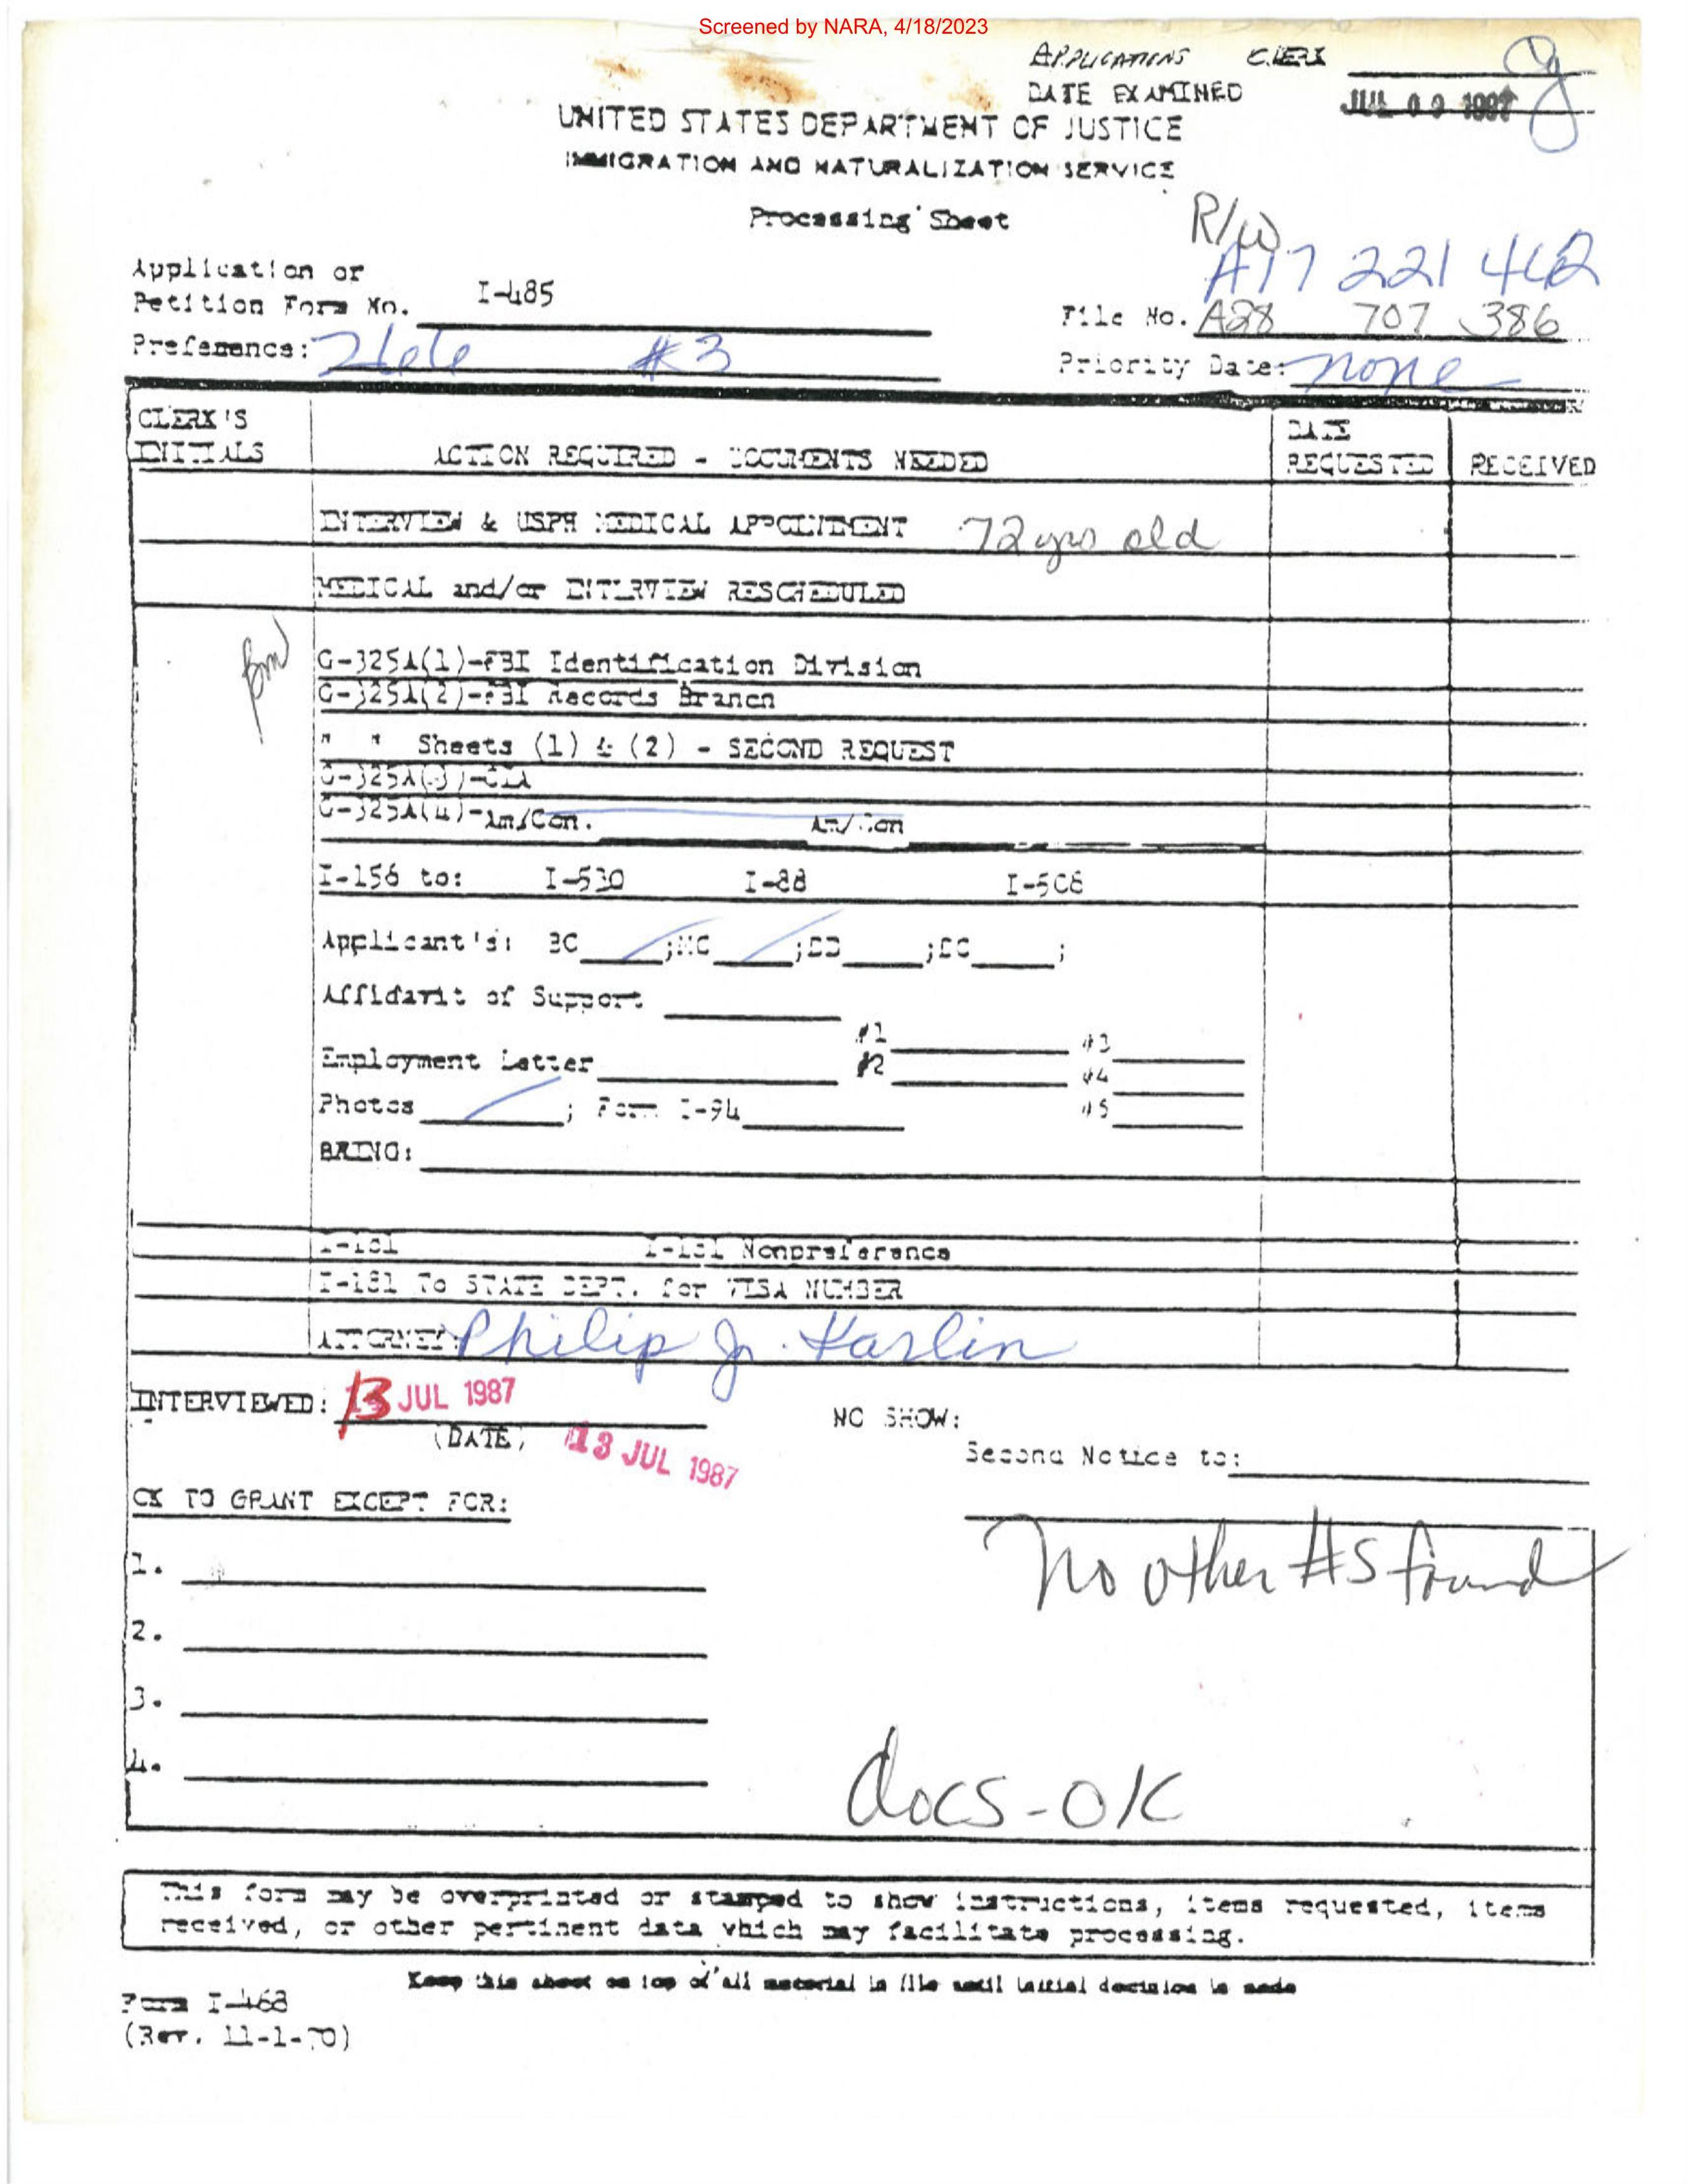 Screened by NARA, 4/18/2023
APPLICATIONS CLERK
DATE EXAMINED JUL 09 1987
UNITED STATES DEPARTMENT OF JUSTICE
IMMIGRATION AND NATURALIZATION SERVICE
Processing Sheet
R/W
A17 221 442
Application or
Petition Form No. I-485
File No. A28 707 386
Preference: #3
Priority Date: none
CLERK'S
INITIALS
ACTION REQUIRED - DOCUMENTS NEEDED
DATE
REQUESTED
RECEIVED
INTERVIEW & USPH MEDICAL APPOINTMENT 72 yrs old
MEDICAL and/or INTERVIEW RESCHEDULED
G-325A(1)-FBI Identification Division
G-325A(2)-FBI Records Branch
" " Sheets (1) & (2) - SECOND REQUEST
G-325A(3)-CIA
G-325A(4)-Am/Con. Am/Con
I-156 to: I-530 I-88 I-508
Applicant's: BC ;MC ;DD ;DC ;
Affidavit of Support
#1 #3
Employment Letter #2 #4
Photos ; Form I-94 #5
BRING:
I-181 I-181 Nonpreference
I-181 To STATE DEPT. for VISA NUMBER
ATTORNEY: Philip J. Karlin
INTERVIEWED: 13 JUL 1987
(DATE) 13 JUL 1987
NO SHOW:
Second Notice to:
OK TO GRANT EXCEPT FOR:
No other #s found
1.
2.
3.
4.
docs-OK
This form may be overprinted or stamped to show instructions, items requested, items
received, or other pertinent data which may facilitate processing.
Keep this sheet on top of all material in file until initial decision is made
Form I-468
(Rev. 11-1-70)